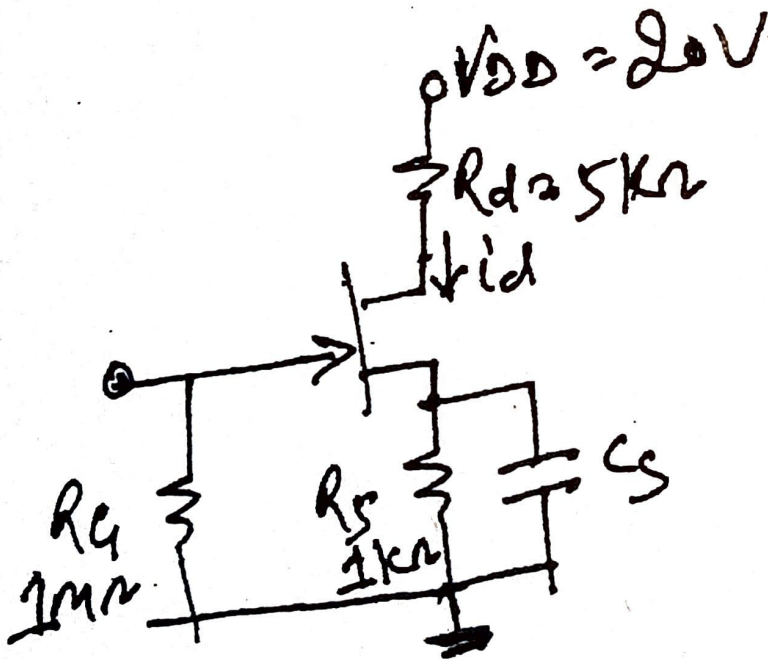 VDD = 20V
Rd = 5KΩ
id
RG
1MΩ
RS
1KΩ
CS